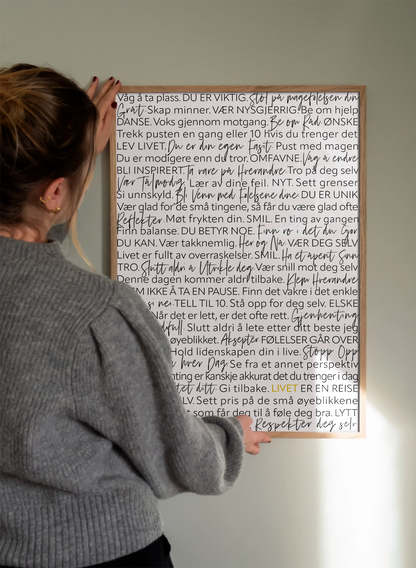 Våg å ta plass. DU ER VIKTIG. Stol på magefølelsen din
Gråt. Skap minner. VÆR NYSGJERRIG. Be om hjelp
DANSE. Voks gjennom motgang. Be om Råd ØNSKE
Trekk pusten en gang eller 10 hvis du trenger det
LEV LIVET. Du er din egen Fasit. Pust med magen
Du er modigere enn du tror. OMFAVNE. Våg å endre
BLI INSPIRERT. Ta vare på Hverandre. Tro på deg selv
Vær Tålmodig. Lær av dine feil. NYT. Sett grenser
Si unnskyld. Bli Venn med Følelsene dine. DU ER UNIK
Vær glad for de små tingene, så får du være glad ofte
Reflekter. Møt frykten din. SMIL. En ting av gangen
Finn balanse. DU BETYR NOE. Finn ro i det du Gjør
DU KAN. Vær takknemlig. Her og Nå. VÆR DEG SELV
Livet er fullt av overraskelser. SMIL. Ha et åpent Sinn
TRO. Slutt aldri å Utvikle deg. Vær snill mot deg selv
Denne dagen kommer aldri tilbake. Klem Hverandre
EM IKKE Å TA EN PAUSE. Finn det vakre i det enkle
TELL TIL 10. Stå opp for deg selv. ELSKE
Når det er lett, er det ofte rett. Gjenhenting
dfull Slutt aldri å lete etter ditt beste jeg
øyeblikket. Aksepter FØLELSER GÅR OVER
Hold lidenskapen din i live. Stopp Opp
hver Dag Se fra et annet perspektiv
nting er kanskje akkurat det du trenger i dag
tet ditt Gi tilbake. LIVET ER EN REISE
LV. Sett pris på de små øyeblikkene
som får deg til å føle deg bra. LYTT
Respekter deg selv